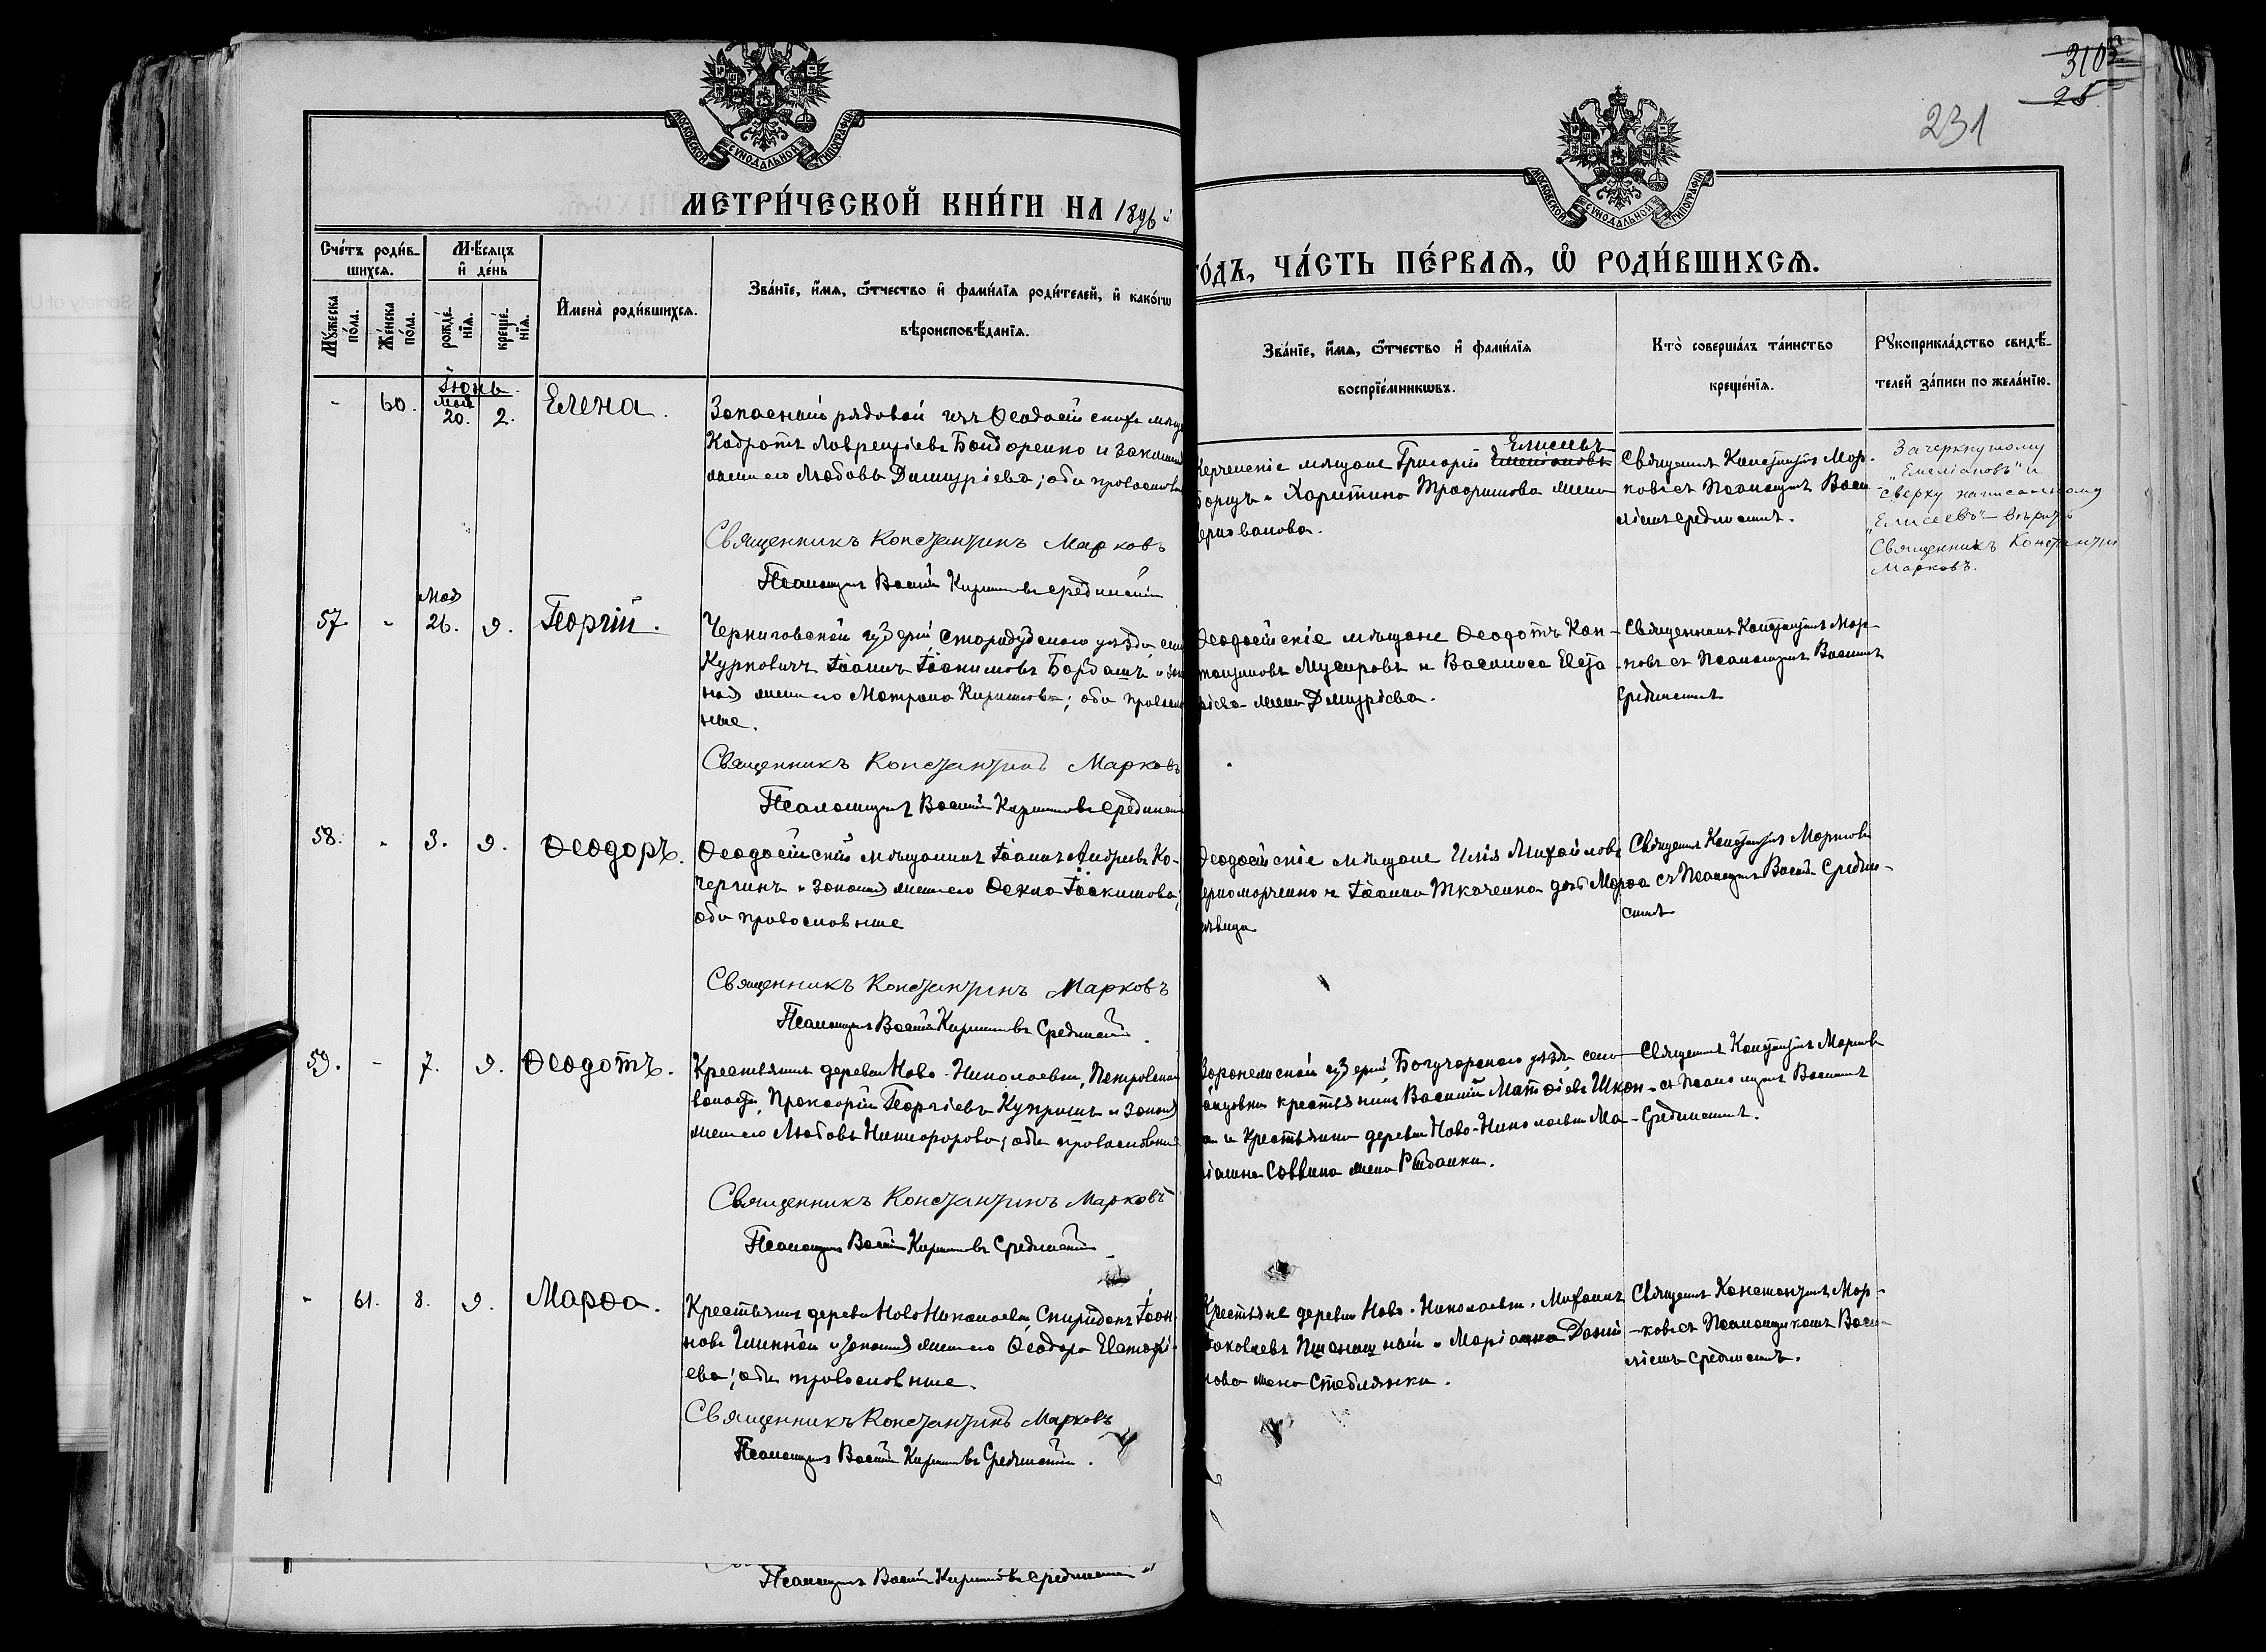 3105
25
231
МОСКОВСКОЙ СѴНОДАЛЬНОЙ ТИПОГРАФІИ
МОСКОВСКОЙ СѴНОДАЛЬНОЙ ТИПОГРАФІИ
МЕТРИ́ЧЕСКОЙ КНИ́ГИ НА 1896й
ГО́ДЪ, ЧА́СТЬ ПЕ́РВАЯ, Ѡ РОДИ́ВШИХСЯ.
Сче́тъ роди́в-
шихся.
Мꙋ́жеска по́ла.
Же́нска по́ла.
Мѣ́сяцъ
и҆ де́нь
рожде́-нїя.
креще́-нїя.
И҆мена̀ роди́вшихся.
Зва́нїе, и҆́мя, ѻ҆́тчество и҆ фами́лїя роди́телей, и҆ како́гѡ
вѣроисповѣ́данїя.
Зва́нїе, и҆́мя, ѻ҆́тчество и҆ фами́лїя
воспрїе́мникѡвъ.
Кто̀ соверша́лъ та́инство
креще́нїя.
Рꙋкоприкла́дство свидѣ́-
телей за́писи по жела́нїю.
Іюнь.
- 60. Мая 20. 2. Елена.
Запасный рядовой изъ Ѳеодосійскихъ мѣща
Кодратъ Лаврентіевъ Бондаренко и законная
жена его Любовь Димитріева; оба православные
Священникъ Константинъ Марковъ
Псаломщикъ Василій Кирилловъ Срединскій
Керченскіе мѣщане Григорій Емеліановъ Елисеевъ
Борщъ и Харитина Трофимова жена
Священникъ Константинъ Мар-
ковъ съ Псаломщикъ Васи-
ліемъ Срединскимъ.
Зачеркнутому
"Емеліановъ" и
сверху написанному
"Елисеевъ" - вѣритъ
Священникъ Константинъ
Марковъ.
57. - Мая 26. 9. Георгій.
Черниговской губерніи, Стародубскаго уѣзда села
Курковичъ Іоаннъ Іоакимовъ Бардашъ и закон
ная жена его Матрона Кириллова; оба православ
ные.
Священникъ Константинъ Марковъ
Псаломщикъ Василій Кирилловъ Срединскій
Ѳеодосійскіе мѣщане Ѳеодотъ Кон-
стантиновъ и Василиса Евста
ѳіева жена Димитріева.
Священникъ Константинъ Мар-
ковъ съ Псаломщикъ Василіемъ
Срединскимъ
58. - 3. 9. Ѳеодоръ.
Ѳеодосійскій мѣщанинъ Іоаннъ Андреевъ Ко-
чергинъ и законная жена его Ѳекла Іоакимова;
оба православные
Священникъ Константинъ Марковъ
Псаломщикъ Василій Кирилловъ Срединскій.
Ѳеодосійскіе мѣщане Илія Михайловъ
Черноморченко и Іоанна Ткаченка дочь Марѳа
дѣвица
Священникъ Константинъ Марковъ
съ Псаломщикъ Василій Средин-
скимъ
59. - 7. 9. Ѳеодотъ.
Крестьянинъ деревни Ново-Николаевки, Петровской
волости, Прокофій Георгіевъ Купришъ и законная
жена его Любовь Никифорова; оба православные
Священникъ Константинъ Марковъ
Псаломщикъ Василій Кирилловъ Срединскій
Воронежской губерніи, Богучарскаго уѣзда, села
крестьянинъ Василій Матѳіевъ Шкон-
а и крестьянина деревни Ново-Николаевки Ма-
Саввина жена Рыбалки.
Священникъ Константинъ Марковъ
съ Псаломщикъ Василіемъ
Срединскимъ.
- 61. 8. 9. Марѳа.
Крестьянинъ деревни Ново Николаевки Спиридонъ Іоан-
новъ Глинный и законная жена его Ѳеодора Евстаѳі-
ева; оба православные.
Священникъ Константинъ Марковъ
Псаломщикъ Василій Кирилловъ Срединскій.
Крестьяне деревни Ново-Николаевки, Михаилъ
Іаковлевъ Пшеничный и Маріамна Дани-
лова жена Стеблянки.
Священникъ Константинъ Мар-
ковъ съ Псаломщикомъ Васи-
ліемъ Срединскимъ.
Псаломщикъ Василій Кирилловъ Срединскій